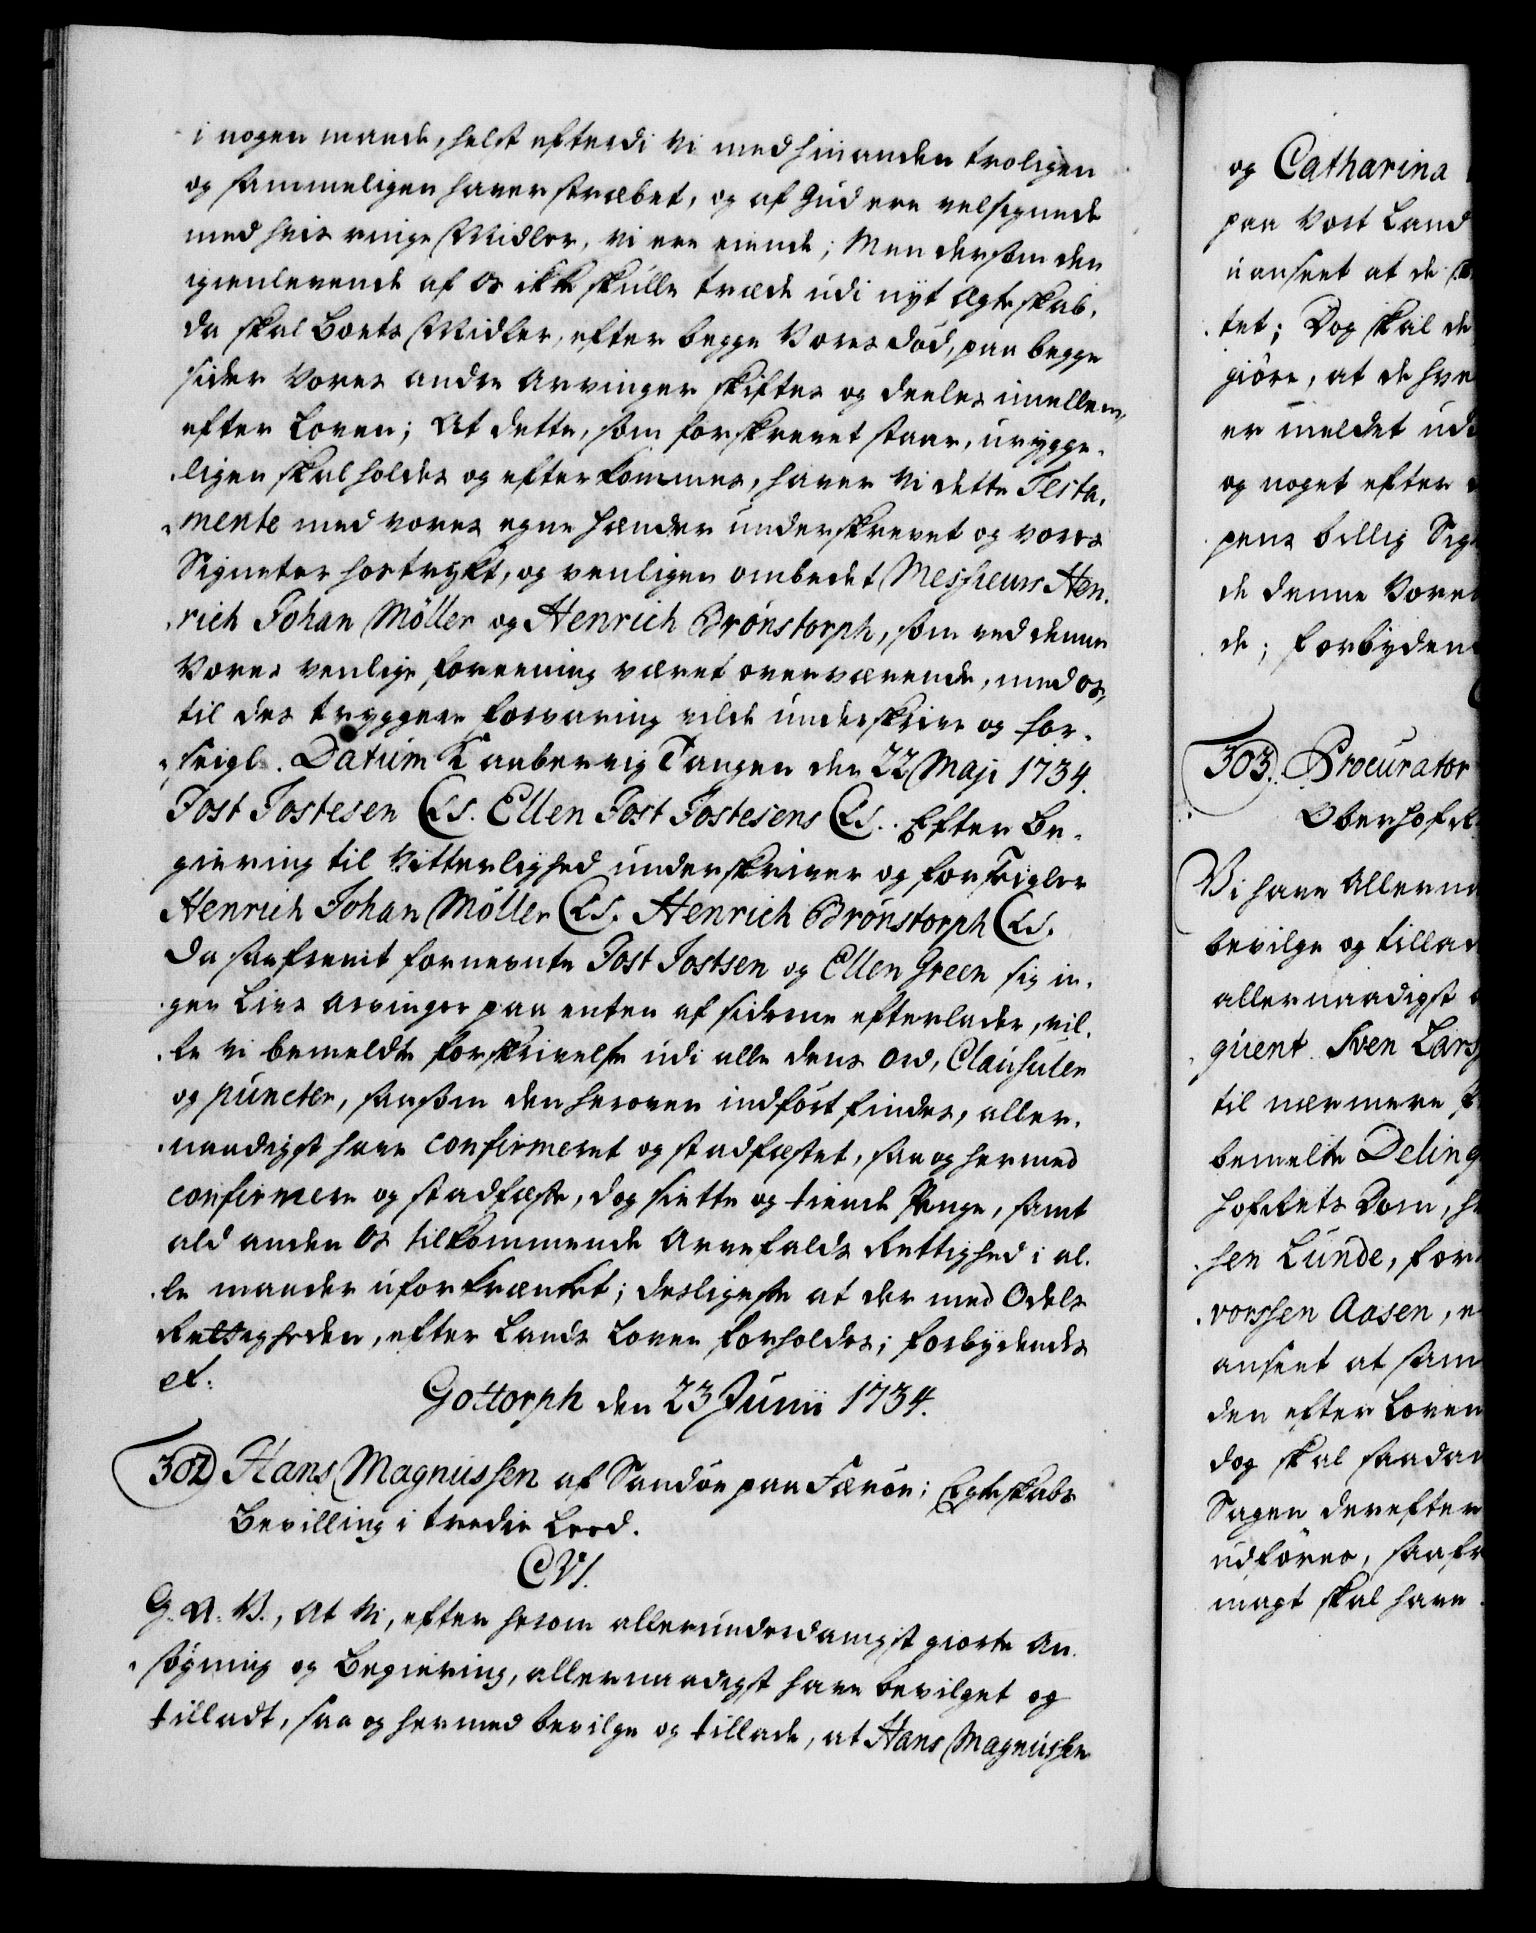 i nogen maade, helst efterdi Vi med hinanden troligen
og sammeligen haver stræbet, og af Gud ere velsignede
med hvis ringe Midler, vi ere eiende; Men dersom den
igienlevende af os ikke skulle træde udi nyt Ægteskab,
da skal Boets Midler, efter begge Vores død, paa begge
sider Vores andre Arvinger skiftes og deeles imellem,
efter Loven; At dette, som forskrevet staar, urygge-
ligen skal holdes og efterkommes, haver Vi dette Testa-
mente med vores egne Hænder underskrevet og vores
Signeter hostrykt, og venligen ombedet Messieurs Hen-
rich Johan Möller og Henrich Brónstorph, som ved denne
Vores venlige foreening været overværende, med os,
til des tryggere forvaring vilde underskrive og for-
seigle. Datum Kaabervig Tangen den 22 Maji 1734.
Jost Jostesen LS. Ellen Jost Jostesens LS. Efter Be-
giering til Vitterlighed underskriver og forseigler
Henrich Johan Möller LS. Henrich Brónstorph LS.
Da saafremt fornevnte Jost Jostsen og Ellen Green sig in-
gen Livs Arvinger paa enten af siderne efterlader, vil-
le vi bemeldte forskrivelse udi alle dens Ord, Clausuler
og puncter, saasom den herover indført findes, aller-
naadigst have confirmeret og stadfæstet, saa og hermed
confirmere og stadfæste, dog siette og tiende Penge, samt
ald anden Os tilkommende Arvefalds Rettighed i al-
le maader uforkrænket; desligeste at der med Odels
Rettigheden, efter Lands Loven forholdes; forbydendes
et.
Gottorph den 23 Junii 1734.
302 Hans Magnussen af Sandöe paa Færöe; Egteskabs
Bevilling i tredie Leed.
CVI.
G. A. V., At Vi, efter herom allerunderdanigst giorte An-
søgning og Begiering, allernaadigst have bevilget og
tilladt, saa og hermed bevilge og tillade, at Hans Magnussen
og Catharina
paa Vort Land
uanseet at de
tet; Dog skal de
giöre, at de hve
er meldet udi
og noget efter
pens billig Sig
de denne Vores
de; forbydende
303. Procurator
Oberhofret
Vi have Allerna
bevilge og tillad
allernaadigst
quent Sven Lars
til nærmere
bemelte Deling
hofrets Dom, h
sen Lunde, for
vorssen Aasen, e
anseet at sam
den efter Loven
dog skal saadan
Sagen derefter
udføres, saafr
magt skal have